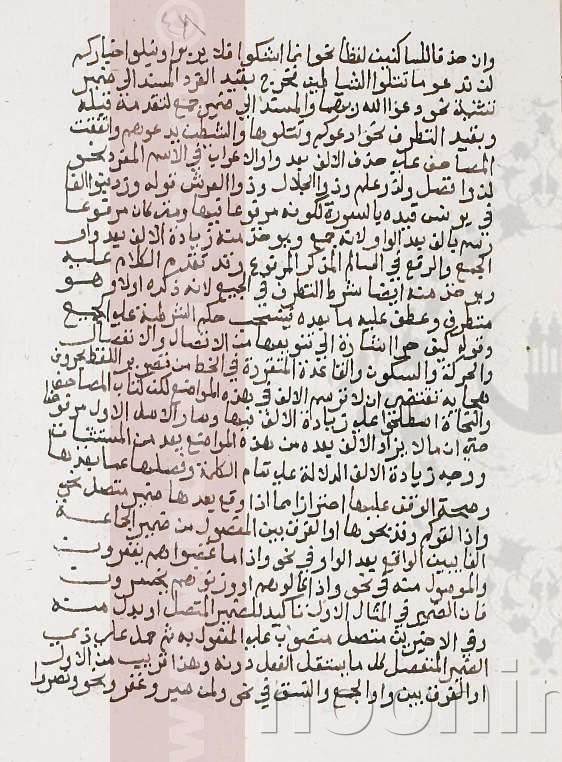 وان حذفا للساكنين لفظا نحو انما اشكوا فلا يربوا ونبلوا اخباركم
لن ندعو ما تتلوا الشياطين تخرج بقيد الفرد المسند الى ضمير
تثنية نحو دعوا الله ربهما والمسند الى ضمير جمع لتقدمه قبله
وبقيد التطرف نحو ادعوكم ونتلوها والشيطان يدعوهم واتفقت
المصاحف على حذف الالف بعد واو الاعراب في الاسم المفرد نحو
لذوا فضل ولذو علم وذو الجلال وذو العرش قوله وزد بنوا الفا
في يونس قيده بالسورة لكونه مرفوعا فيها ومتى كان مرفوعا
رسم بالف بعد الواو لانه جمع ويوخذ منه زيادة الالف بعد واو
الجمع والرفع في السالم المذكر المرفوع وقد تقدم الكلام عليه
ويوخذ منه ايضا شرط التطرف في الجميع لانه ذكره اولا وهو
متطرف وعطف عليه ما بعده فينسحب حكم الشرطية على الجميع
وقوله كيف جرا اشارة الى تنويعها من الاتصال والانفصال
والحركة والسكون والقاعدة المتقررة في الخط من تصوير اللفظ بحروف
هجايه تقتضي ان لا ترسم الالف في هذه المواضع لكن كتاب المصاحف
والنحاة اصطلحوا على زيادة الالف فيها وصار الاصل الاول مرفوضا
حتى ان ما لا يزاد الالف بعده من هذه المواضع يعد من المستثنيات
ووجه زيادة الالف الدلالة على تمام الكلمة وفصلها عما بعدها
وصحة الوقف عليها احترازا مما اذا وقع بعدها ضمير متصل نحو
واذا القوكم وقد نحوها او الفرق بين المفصول من ضمير الجماعة
الغايبين الواقع بعد الواو في نحو واذا ما غضبوا هم يغفرون
والموصول منه في نحو واذا كالوهم او وزنوهم يخسرون
فان الضمير في المثال الاول تاكيد للضمير المتصل او بدل منه
وفي الاخيرين متصل منصوب على المفعول به ثم حمل على
الضمير المنفصل كل ما يستقل الفعل دونه وهذا قريب من الاول
او الفرق بين واو الجمع والنسق في نحو ولمن صبر وغفر ونحو ونصروا